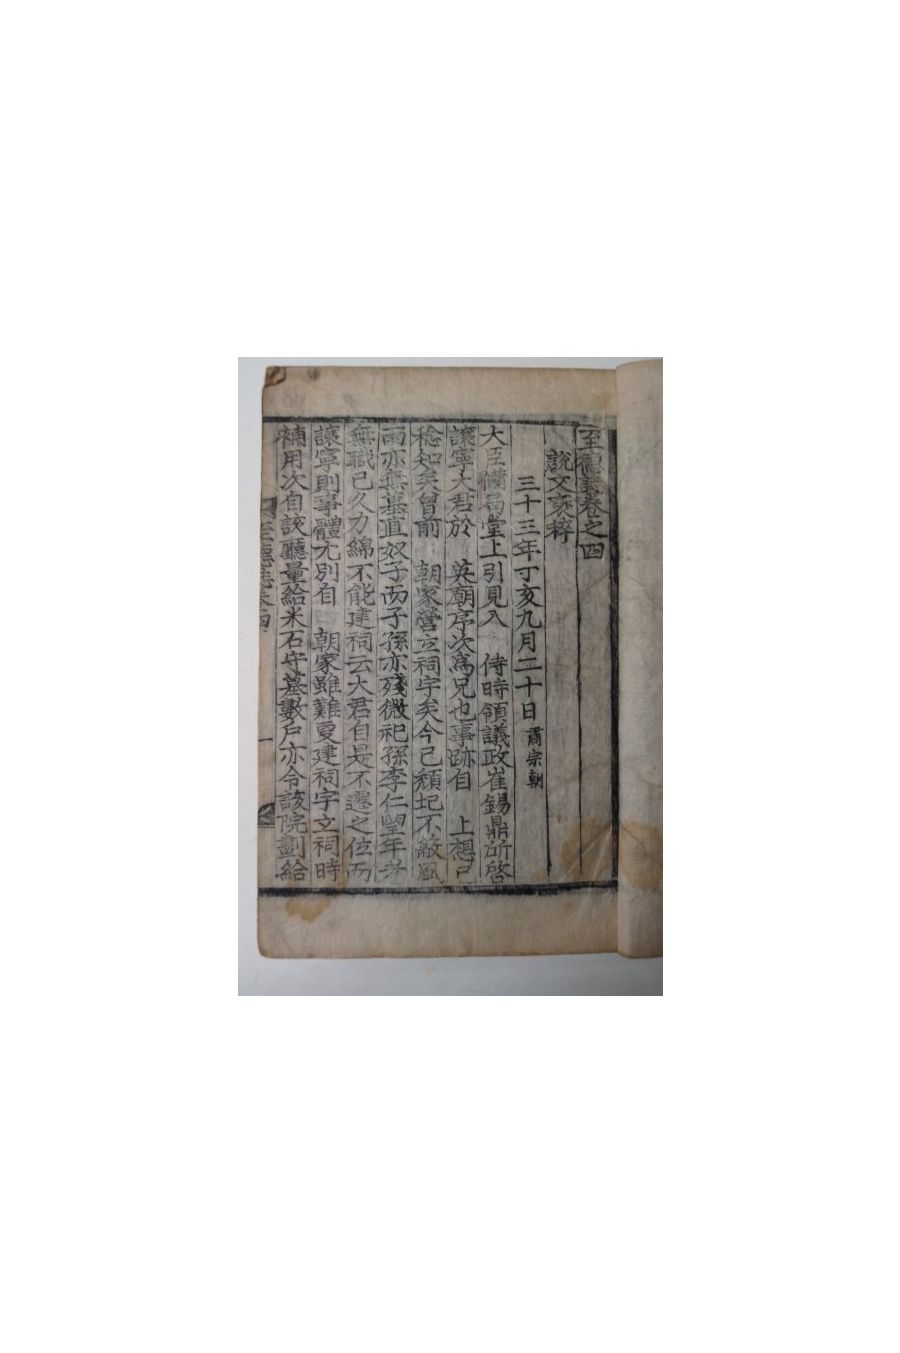 至德誌卷之四
說文裒稡
三十三年丁亥九月二十日肅宗朝
大臣備局堂上引見入 侍時領議政崔錫鼎所啓
讓寧大君於 英廟序次爲兄也事跡自 上想已
稔知矣曾前 朝家營立祠宇矣今已頹圮不蔽風
雨亦無墓直奴子而子孫亦殘微祀孫李仁望年老
無職已久力綿不能建祠云大君自是不遷之位而
讓寧則事體尤別自 朝家雖難更建祠宇立祠時
補用次自該廳量給米石守墓數戶亦令該院劃給
至德誌卷四
一